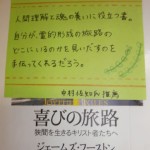 人間理解と魂の養いに役立つ書。
自分が、霊的形成の旅路の
どこにいるのかを見いだすのを
手伝ってくれるだろう。
中村佐知 推薦
喜びの旅路
狭間を生きるキリスト者たちへ
ジェームズ・フーストン